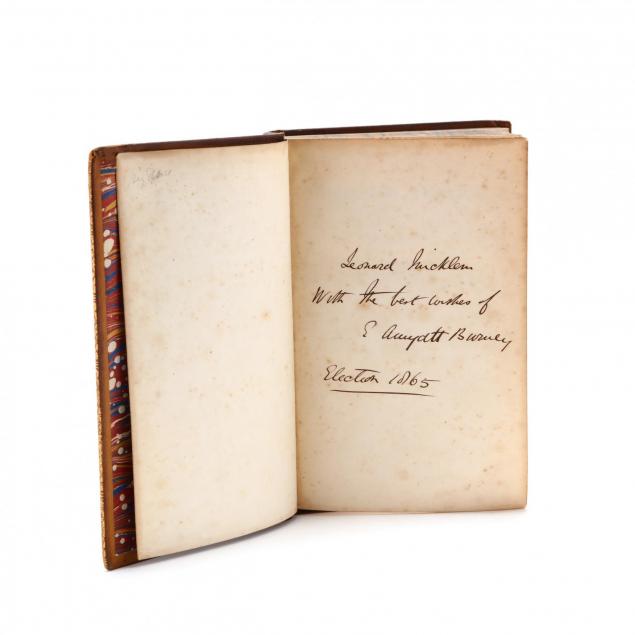 Leonard Micklem
With the best wishes of
E Amyatt Burney
Election 1865